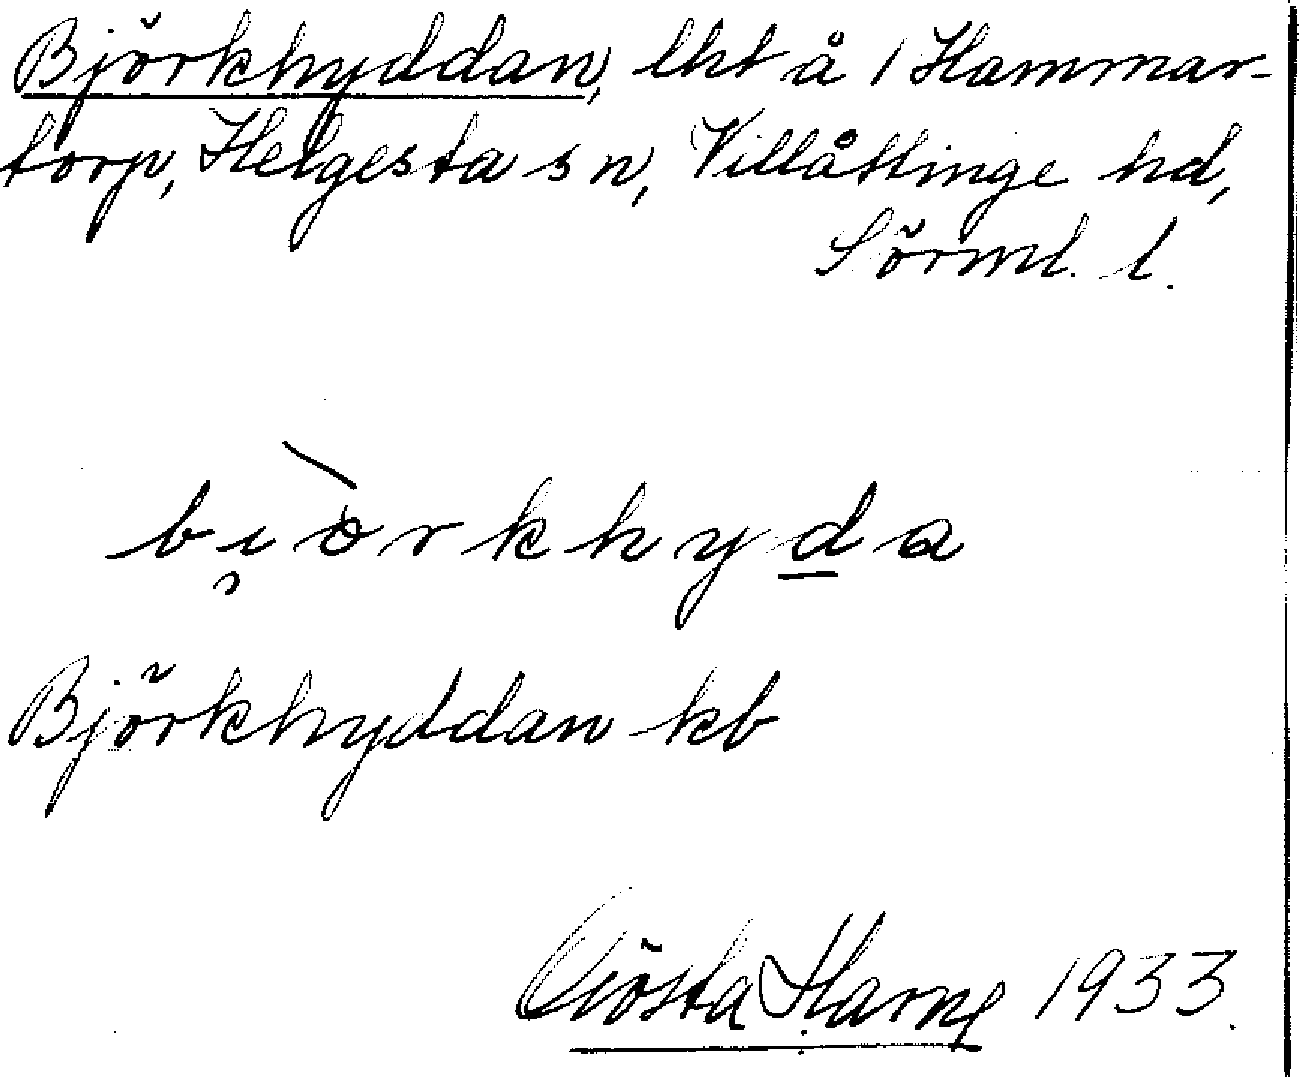 Björkhyddan, lht å 1 Hammar-
torp, Helgesta sn, Villåttinge hd,
Sörml. l.
bi̯òrkhyd̲a
Björkhyddan kb
Gösta Harne 1933.